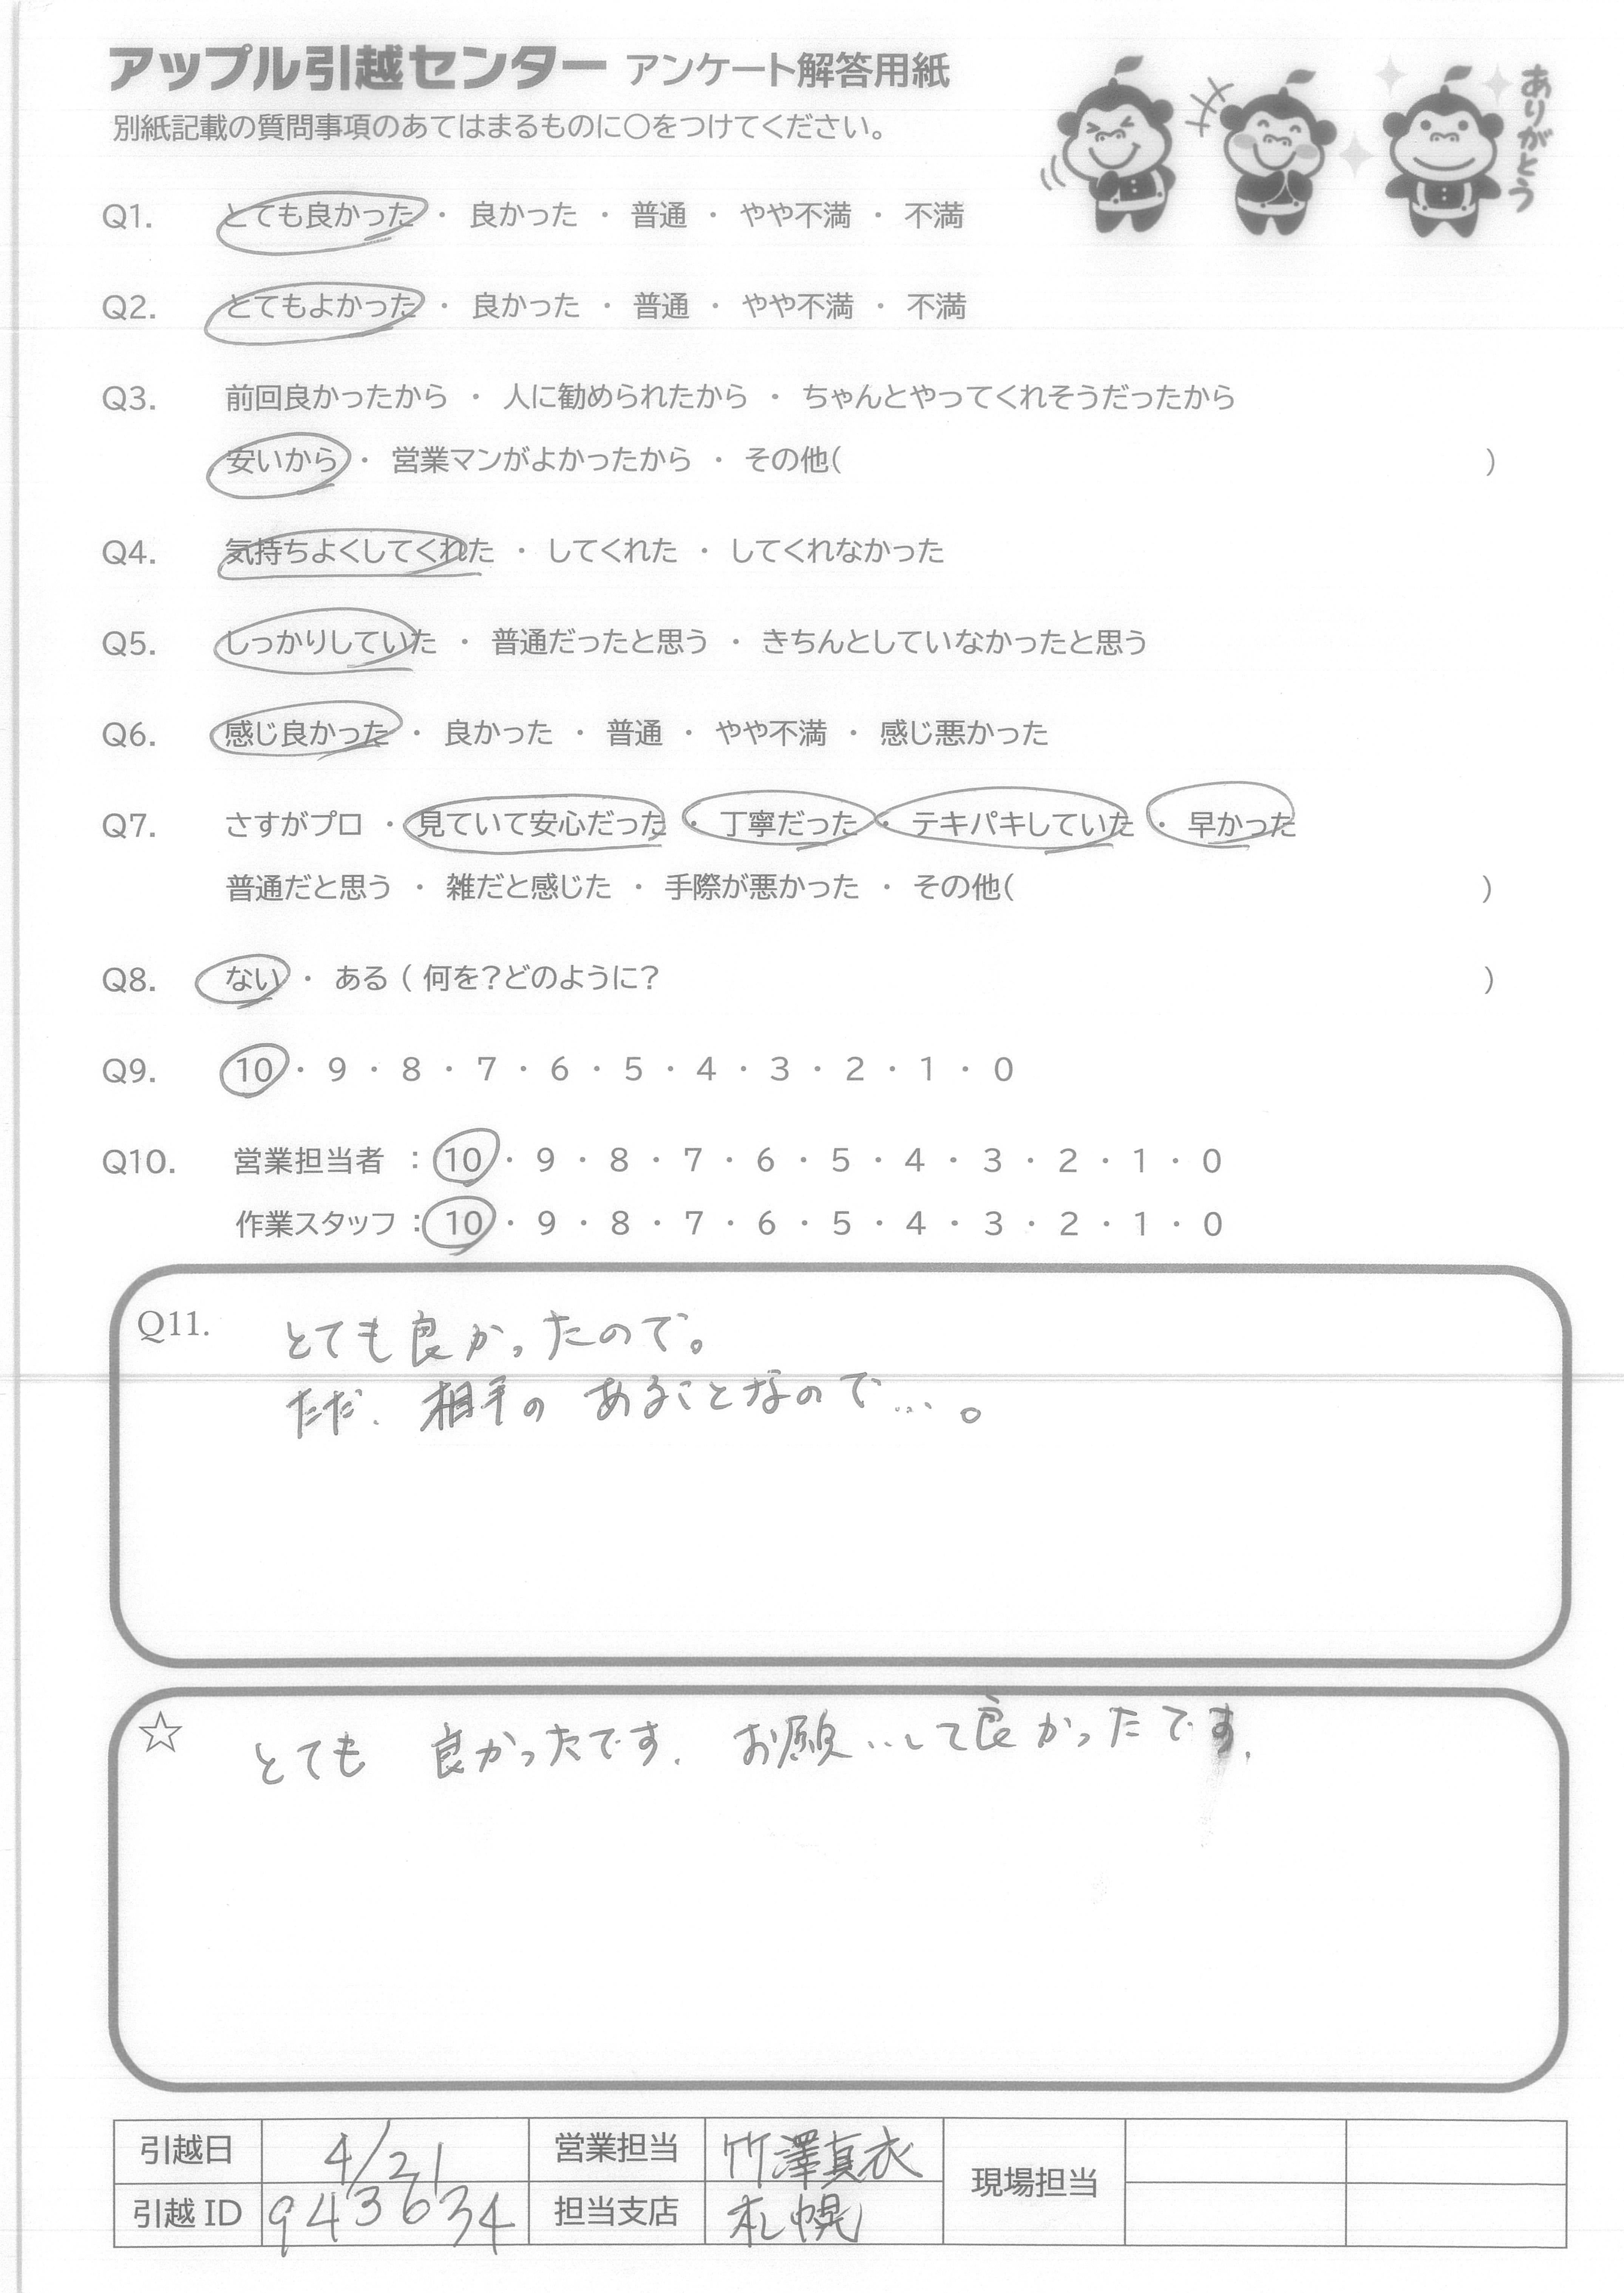 アップル引越センター アンケート解答用紙
別紙記載の質問事項のあてはまるものに〇をつけてください。
ありがとう
Q1. とても良かった ・ 良かった ・ 普通 ・ やや不満 ・ 不満
Q2. とてもよかった ・ 良かった ・ 普通 ・ やや不満 ・ 不満
Q3. 前回良かったから ・ 人に勧められたから ・ ちゃんとやってくれそうだったから
安いから ・ 営業マンがよかったから ・ その他( )
Q4. 気持ちよくしてくれた ・ してくれた ・ してくれなかった
Q5. しっかりしていた ・ 普通だったと思う ・ きちんとしていなかったと思う
Q6. 感じ良かった ・ 良かった ・ 普通 ・ やや不満 ・ 感じ悪かった
Q7. さすがプロ ・ 見ていて安心だった ・ 丁寧だった ・ テキパキしていた ・ 早かった
普通だと思う ・ 雑だと感じた ・ 手際が悪かった ・ その他( )
Q8. ない ・ ある ( 何を?どのように? )
Q9. 10 ・ 9 ・ 8 ・ 7 ・ 6 ・ 5 ・ 4 ・ 3 ・ 2 ・ 1 ・ 0
Q10. 営業担当者 : 10 ・ 9 ・ 8 ・ 7 ・ 6 ・ 5 ・ 4 ・ 3 ・ 2 ・ 1 ・ 0
作業スタッフ : 10 ・ 9 ・ 8 ・ 7 ・ 6 ・ 5 ・ 4 ・ 3 ・ 2 ・ 1 ・ 0
Q11. とても良かったので。
ただ、相手のあることなので…。
☆ とても 良かったです. お願いして良かったです.
引越日 4/21 営業担当 竹澤真衣 現場担当
引越ID 943634 担当支店 札幌